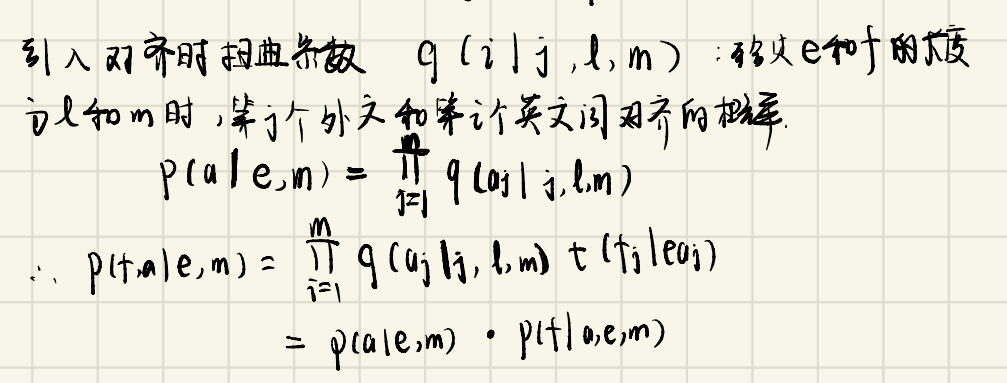 引入对齐时扭曲参数 q(i|j,l,m):释义e和f的长度
为l和m时,第j个外文和第i个英文词对齐的概率.
p(a|e,m) = ∏_{j=1}^{m} q(aj|j,l,m)
∴ p(f,a|e,m) = ∏_{i=1}^{m} q(aj|j,l,m) t(fj|eaj)
= p(a|e,m) · p(f|a,e,m)